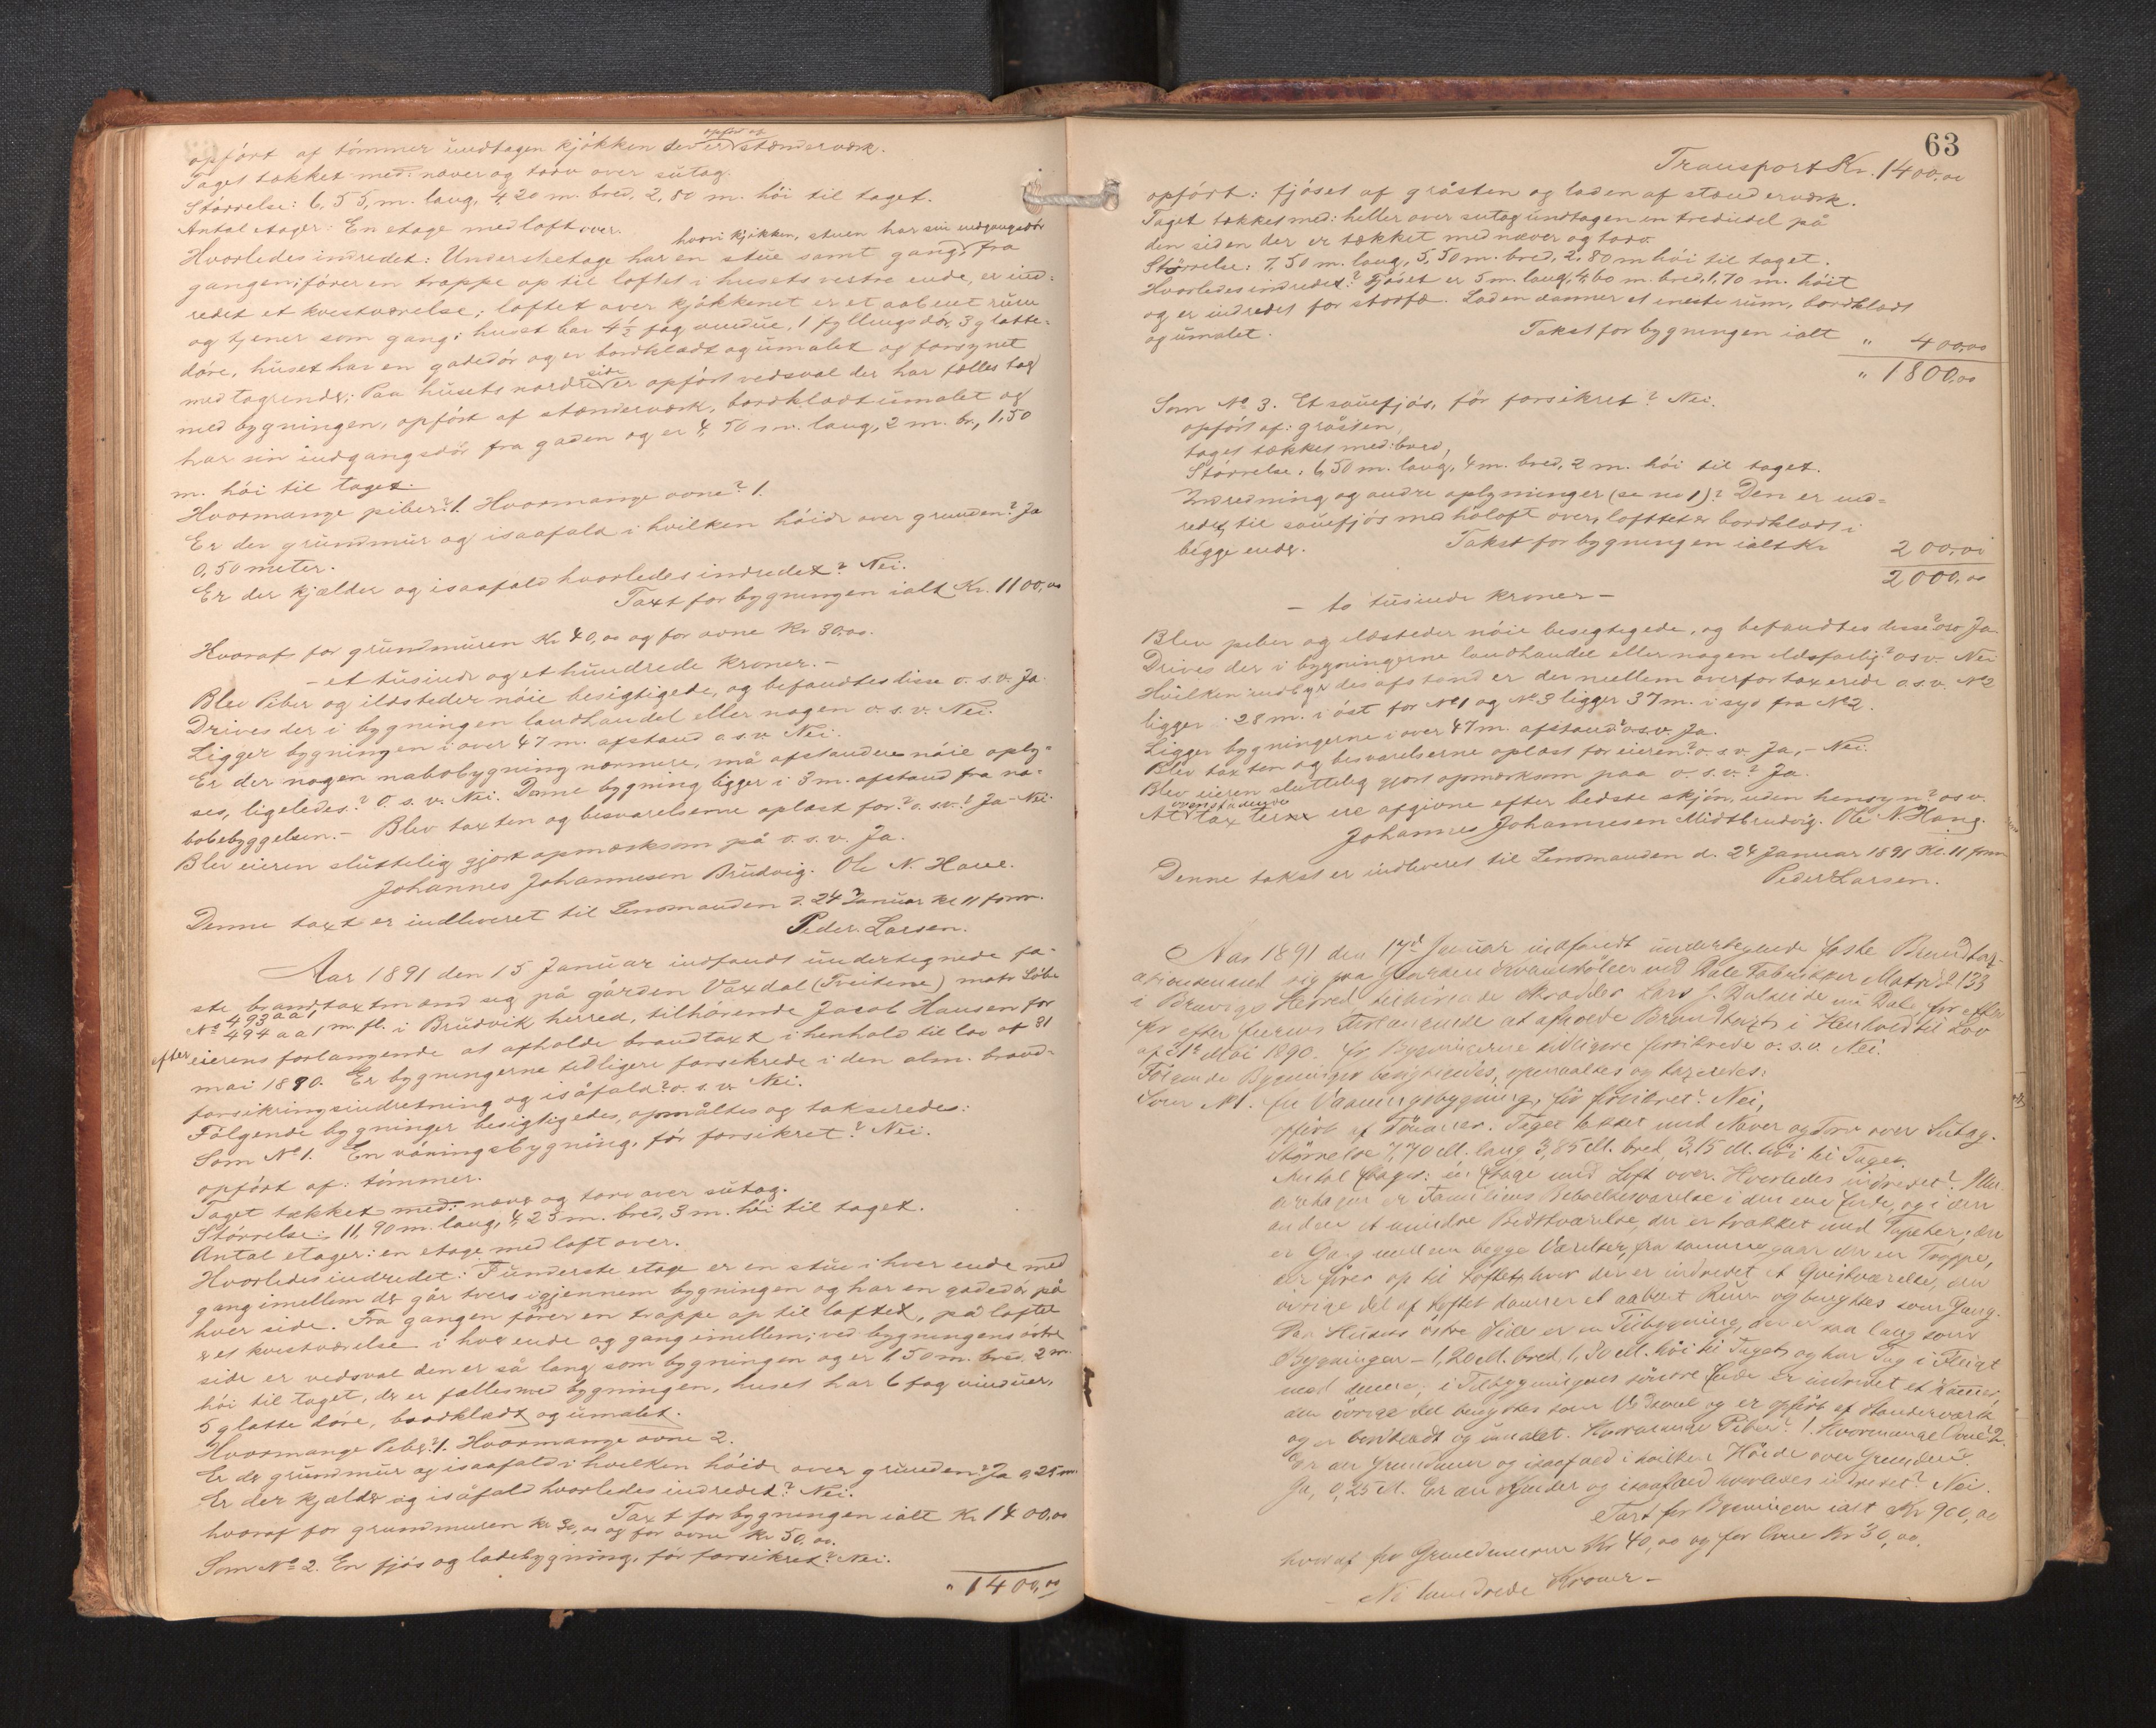 opført af tømmer undtagen kjøkken der er opført af stænderværk.
Taget tækket med: næver og torv over sutag.
Størrelse: 6,55, m. lang, 4,20 m. bred, 2,80 m. høi til taget.
Antal etager: En etage med loft over.
Hvorledes indredet: Understeetage har en stue samt gang, hvori kjøkken, stuen har sin indgangsdør fra
gangen fører en trappe op til loftet i husets vestre ende, er ind-
redet et kvistværelse; loftet over kjøkkenet er et aabent rum
og tjener som gang; huset har 4 ½ fag vindue, 1 fyllingsdør, 3 glatte-
døre, huset har en gadedør og er bordklædt og umalet og forsynet
med tagrende; Paa husets nordre side er opført vedsval der har fælles tag
med bygningen, opført af stænderværk, bordklædt umalet og
har sin indgangsdør fra gaden og er 4,50 m. lang, 2 m. br, 1,50
m. høi til taget.
Hvormange piber? 1. Hvormange ovne? 1.
Er der grundmur og isaafald i hvilken høide over grunden? Ja
0,50 meter.
Er der kjælder og isaafald hvorledes indredet? Nei.
Taxt for bygningen ialt Kr. 1100,00
Hvoraf for grundmuren Kr 40,00 og for ovne Kr 30,00.
- et tusinde og et hundrede kroner. -
Blev Piber og ildsteder nøie besigtigede, og befandtes disse o. s. v. Ja.
Drives der i bygningen landhandel eller nogen o. s. v. Nei.
Ligger bygningen i over 47 m. afstand o s. v. Nei.
Er der nogen nabobygning nærmere, må afstandene nøie oply-
ses, ligeledes? O. s. v. Nei. Denne bygning ligger i 3 m. afstand fra na-
bobebyggelsen. - Blev taxten og besvarelserne oplæst for? o. s. v.? Ja - Nei.
Blev eieren sluttelig gjort opmærksom på o. s. v. Ja.
Johannes Johannesen Brudvig. Ole N. Haue.
Denne taxt er indleveret til Lensmanden d. 24 Januar kl 11 form.
Peder Larsen.
Aar 1891 den 15 Januar indfandt undertegnede fa-
ste brandtaxtmænd sig på gården Vaxdal (Treitene) matr Løbe
No 493 aa 1, 494 aa 1 m. fl. i Brudvik herred, tilhørende Jacob Hansen for
efter eierens forlangende at afholde brandtaxt i henhold til lov af 31
mai 1890. Er bygningerne tidligere forsikrede i den alm. brand-
forsikringsindretning og isåfald? o. s. v. Nei.
Følgende bygninger besigtigedes, opmåltes og takseredes:
Som No 1. En våningsbygning, før forsikret? Nei.
opført af: tømmer.
Taget tækket med: næver og torv over sutag.
Størrelse: 11,90 m. lang, 4,25 m. bred, 3 m. høi til taget.
Antal etager: en etage med loft over.
Hvorledes indredet: I underste etage er en stue i hver ende med
gang imellem der går tvers igjennem bygningen og har en gadedør på
hver side. Fra gangen fører en trappe op til loftet, på loftet
er et kvistværelse i hver ende og gang imellem; ved bygningens østre
side er vedsval den er så lang som bygningen og er 1,50 m. bred, 2 m.
høi til taget, der er fælles med bygningen, huset har 6 fag vinduer,
5 glatte døre, bordklædt og umalet.
Hvormange Piber? 1. Hvormange ovne 2.
Er der grundmur og isaafald i hvilken høide over grunden? Ja 0,25 m.
Er der kjælder og isåfald hvorledes indredet? Nei.
Taxt for bygningen ialt Kr 1400,00
hvoraf for grundmuren kr 30,00 og for ovne Kr 50,00.
Som No 2. En fjøs og ladebygning, før forsikret? Nei.
" 1400,00
63
Transport Kr. 1400,00
opført: fjøset af gråsten og laden af stænderværk.
Taget tækket med: heller over sutag undtagen en trediedel på
den siden der er tækket med næver og torv.
Størrelse: 7,50 m. lang, 5,50 m. bred, 2,80 m høi til taget.
Hvorledes indredet? Fjøset er 5 m. lang, 4,60 m. bred, 1,70 m. høit
og er indredet for storfæ. Laden danner et eneste rum, bordklædt
og umalet.
Takst for bygningen ialt " 400,00
" 1800,00
Som No 3. Et sauefjøs, før forsikret? Nei.
opført af: gråsten,
taget tækket med: bord,
Størrelse: 6,50 m. lang, 4 m. bred, 2 m. høi til taget.
Indredning og andre oplysninger (se no 1)? Den er ind-
redet til sauefjøs med høloft over, loftet er bordklædt i
begge ender.
Takst for bygningen ialt Kr 200,00
2000,00
- to tusinde kroner -
Blev peber og ildsteder nøie besigtigede, og befandtes disse? osv Ja.
Drives der i bygningerne landhandel eller nogen ildsfarlig? osv. Nei
Hvilken indbyrdes afstand er der mellem overfor taxerede o. s. v. No 2
ligger 28 m. i øst for No 1 og No 3 ligger 37 m. i syd fra No 2.
Ligger bygningerne i over 47 m. afstand? o. s. v. Ja.
Blev taxten og besvarelserne oplæst for eieren? o. s. v. Ja, - Nei.
Blev eieren sluttelig gjort opmærksom paa o. s. v.? Ja.
At ovenstående taxter ere afgivne efter bedste skjøn, uden hensyn? osv.
Johannes Johannesen Midtbrudvig. Ole N. Haug.
Denne takst er indleveret til Lensmanden d. 24 Januar 1891 Kl. 11 form
Peder Larsen.
Aar 1891 den 17d Januar indfandt undertegnede faste Brandtax-
ationsmænd sig paa Gaarden ved Dale Fabrikker Matr No 133
i Bruvigs Herred tilhørende Skrædder Lars J. Dalseide paa Dale for efter
for efter Eierens Forlangende at afholde Brandtaxt i Henhold til Lov
af 31te Mai 1890. Er Bygningerne tidligere forsikrede o. s. v. Nei.
Følgende Bygninger besigtigedes, opmaaltes og taxeredes:
Som No 1. En Vaaningsbygning, før forsikret? Nei,
opført af Tømmer. Taget tækket med Næver og Torv over Sutag.
Størrelse 7,70 M. lang 3,85 M. bred, 3,15 M. høi til Taget.
Antal Etager: én Etage med Loft over. Hvorledes indredet? I Un-
deretagen er Familiens Beboelsesværelse i den ene Ende, og i den
anden et mindre Bedstværelse, der er trukket med Tapeter; der
er Gang mellem begge Værelser, fra samme gaar der en Trappe,
der fører op til Loftet, hvor der er indredet et Qvistværelse, den
øvrige del af Loftet danner et aabent Rum og benyttes som Gang.
Paa Husets østre Side er en Tilbygning, der er saa lang som
Bygningen - 1,20 M. bred, 1,80 M. høi til Taget og har Tag i Flugt
med denne; i Tilbygningens søndre Ende er indredet et Kammer,
den øvrige del benyttes som Vedsval og er opført af Standerværk
og er bordklædt og umalet. Hvormange Piber? 1. Hvormange Ovne? 2.
Er der Grundmur og isaafald i hvilken Høide over Grunden?
Ja, 0,25 M. Er der Kjælder og isaafald hvorledes indredet? Nei.
Taxt for Bygningen ialt Kr 900,00
hvoraf for Grundmuren Kr 40,00 og for Ovne Kr 30,00.
- Ni hundrede Kroner -